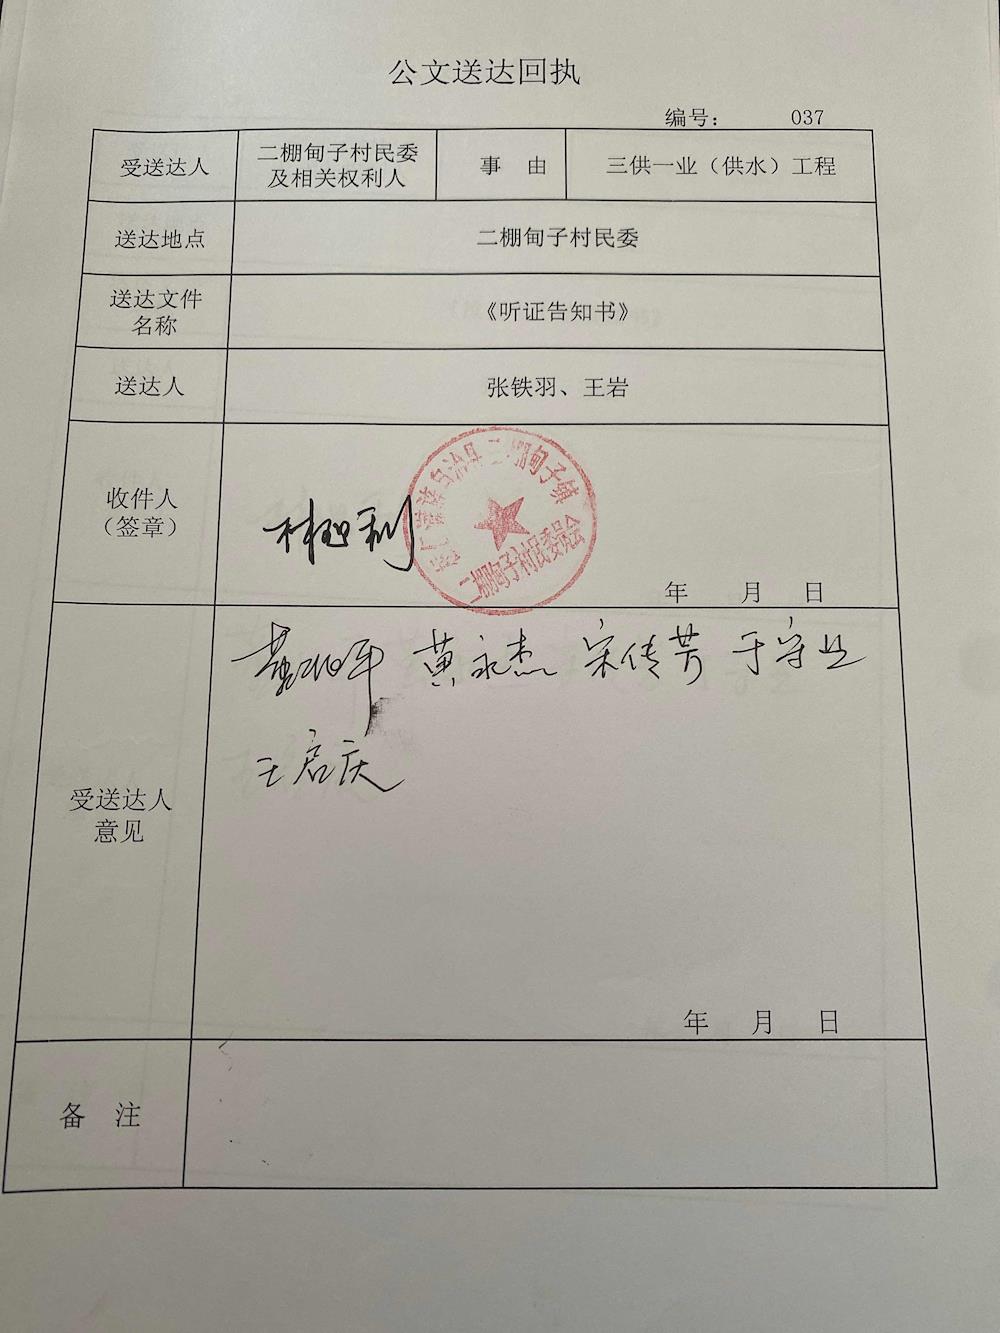 公文送达回执
编号： 037
受送达人
二棚甸子村民委
及相关权利人
事 由
三供一业（供水）工程
送达地点
二棚甸子村民委
送达文件
名称
《听证告知书》
送达人
张铁羽、王岩
收件人
（签章）
自治县二棚甸子镇
二棚甸子村民委员会
年 月 日
黄永杰 宋传芳 于守业
王启庆
受送达人
意见
年 月 日
备 注